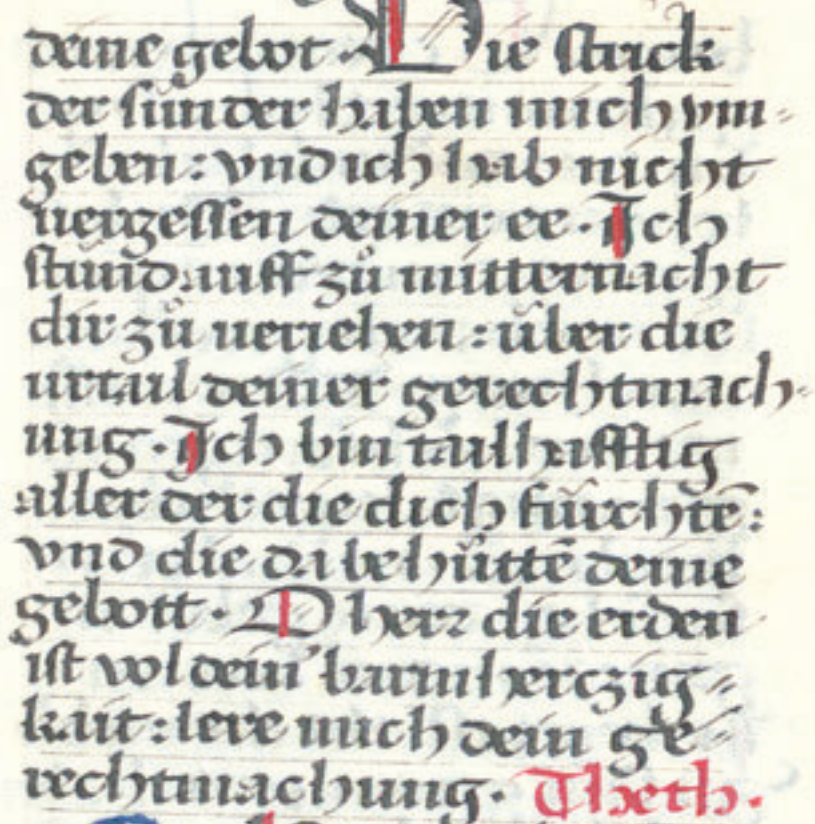 deine gebot · Die strick
der sünder haben mich vm=
geben : vnd ich hab nicht
uergessen deiner ee · Ich
stuind auff zů mitternacht
dir zů ueriehen : über die
urtail deiner gerechtmach=
ung · Ich bin tailhafftig
aller der die dich fürchtē :
vnd die da behüttē deine
gebott · O herz die erden
ist vol dein’ barmherczig=
kait : lere mich dein ge=
rechtmachung · Theth ·